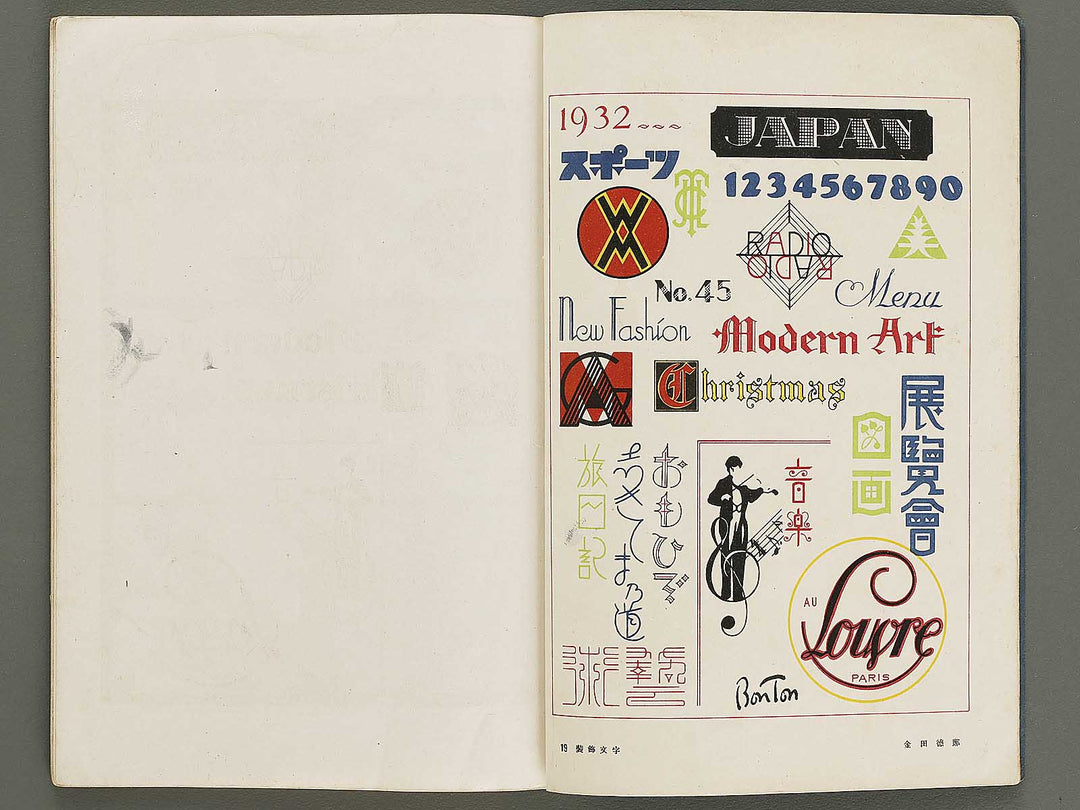 1932
JAPAN
スポーツ
1234567890
WM
RADIO
RADIO
No.45
Menu
New Fashion
Modern Art
Christmas
展覧會
図画
音楽
おもひで
志きしま乃道
旅日記
藝術
AU
Louvre
PARIS
BonTon
19 装飾文字
金田徳郎